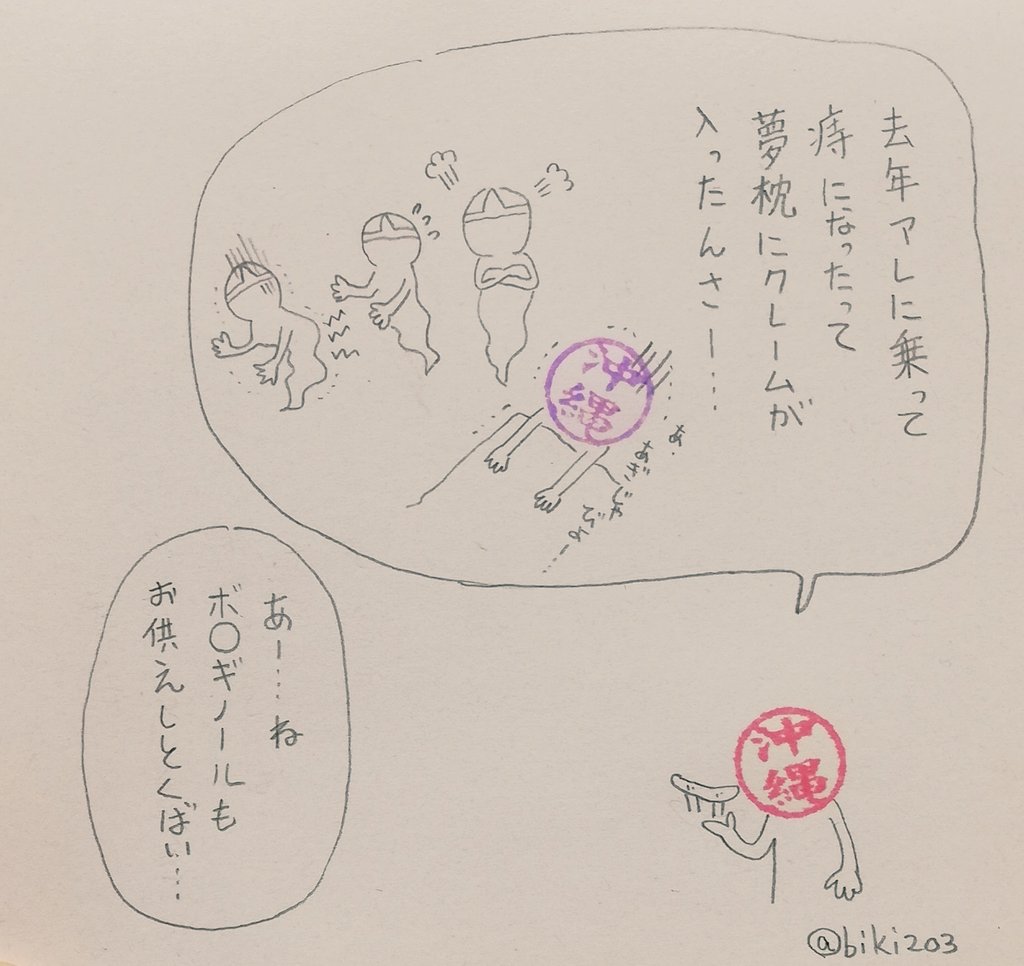 去年アレに乗って
痔になったって
夢枕にクレームが
入ったんさー…
沖
縄
あ、
あぎ
じゃ
びよー…
あー…ね
ボ〇ギノールも
お供えしとくばい…
沖
縄
@biki203